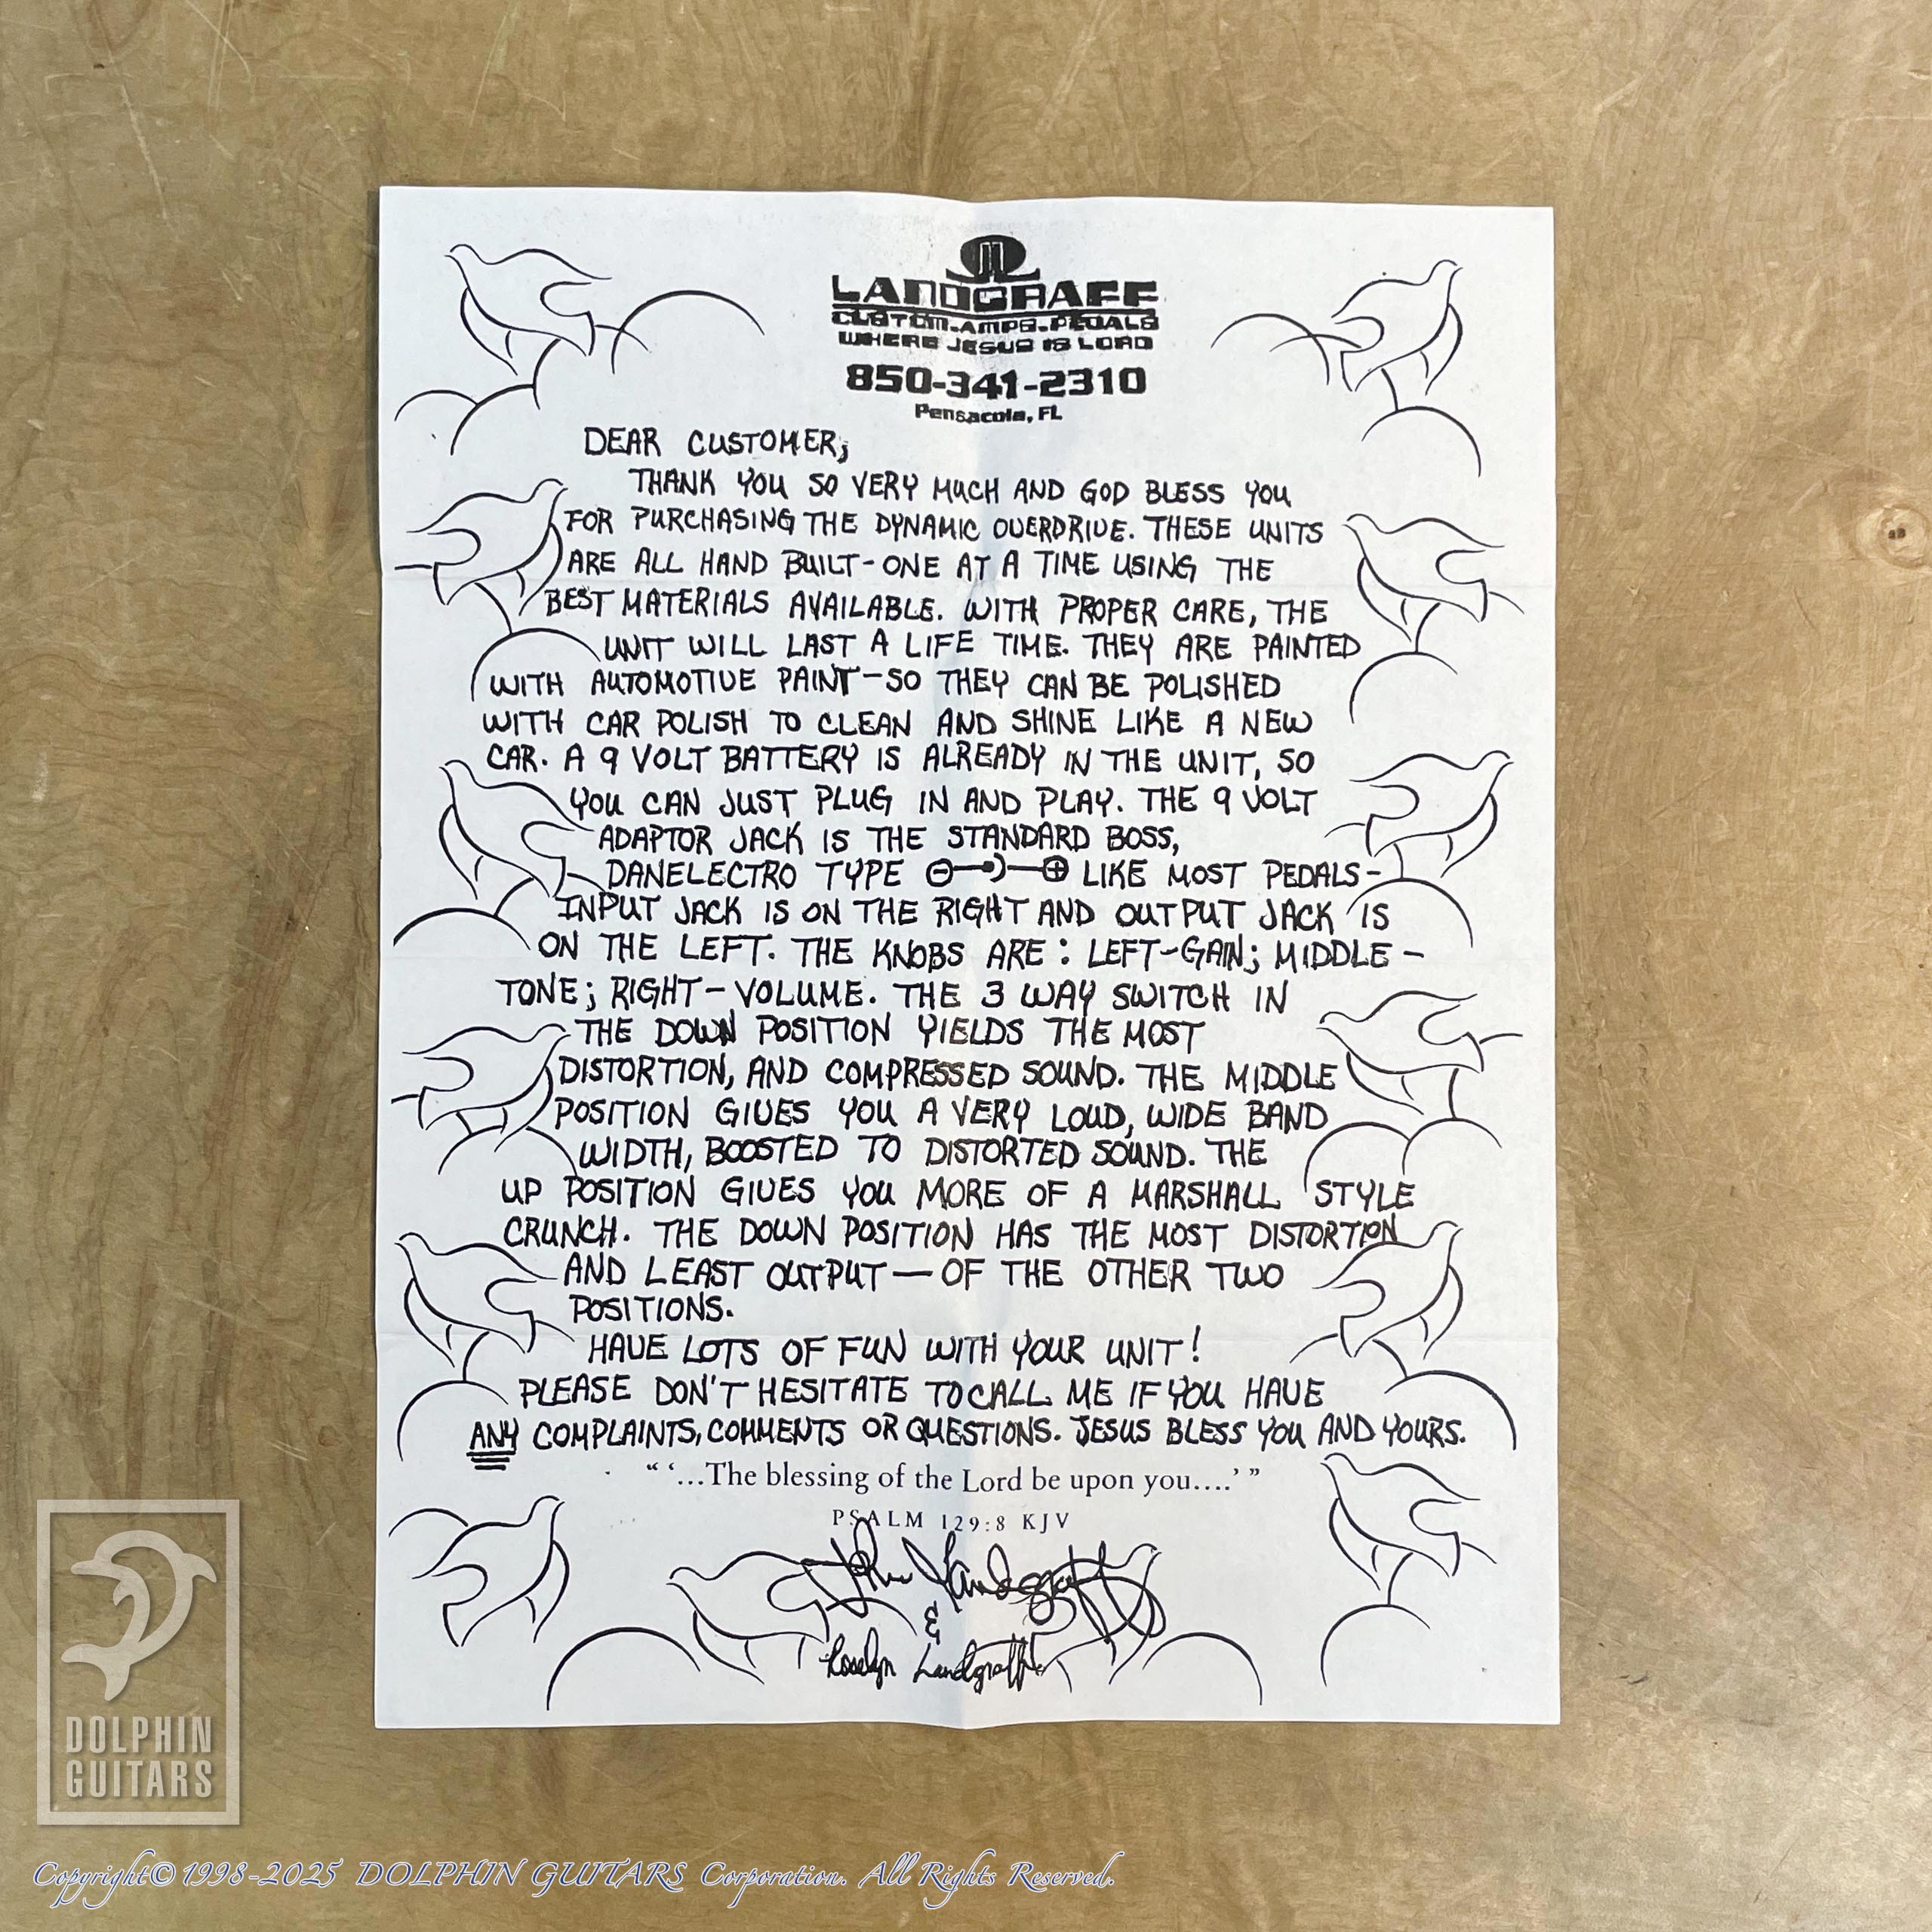 LANDGRAFF
CUSTOM.AMPS.PEDALS
WHERE JESUS IS LORD
850-341-2310
Pensacola, FL
DEAR CUSTOMER;
THANK YOU SO VERY MUCH AND GOD BLESS YOU
FOR PURCHASING THE DYNAMIC OVERDRIVE. THESE UNITS
ARE ALL HAND BUILT-ONE AT A TIME USING THE
BEST MATERIALS AVAILABLE. WITH PROPER CARE, THE
UNIT WILL LAST A LIFE TIME. THEY ARE PAINTED
WITH AUTOMOTIVE PAINT-SO THEY CAN BE POLISHED
WITH CAR POLISH TO CLEAN AND SHINE LIKE A NEW
CAR. A 9 VOLT BATTERY IS ALREADY IN THE UNIT, SO
YOU CAN JUST PLUG IN AND PLAY. THE 9 VOLT
ADAPTOR JACK IS THE STANDARD BOSS,
DANELECTRO TYPE LIKE MOST PEDALS-
INPUT JACK IS ON THE RIGHT AND OUTPUT JACK IS
ON THE LEFT. THE KNOBS ARE: LEFT-GAIN; MIDDLE-
TONE; RIGHT-VOLUME. THE 3 WAY SWITCH IN
THE DOWN POSITION YIELDS THE MOST
DISTORTION, AND COMPRESSED SOUND. THE MIDDLE
POSITION GIVES YOU A VERY LOUD, WIDE BAND
WIDTH, BOOSTED TO DISTORTED SOUND. THE
UP POSITION GIVES YOU MORE OF A MARSHALL STYLE
CRUNCH. THE DOWN POSITION HAS THE MOST DISTORTION
AND LEAST OUTPUT — OF THE OTHER TWO
POSITIONS.
HAVE LOTS OF FUN WITH YOUR UNIT!
PLEASE DON'T HESITATE TO CALL ME IF YOU HAVE
ANY COMPLAINTS, COMMENTS OR QUESTIONS. JESUS BLESS YOU AND YOURS.
“ ‘…The blessing of the Lord be upon you….’ ”
PSALM 129:8 KJV
John Landgraff
&
Roselyn Landgraff
DOLPHIN
GUITARS
Copyright© 1998-2025 DOLPHIN GUITARS Corporation. All Rights Reserved.